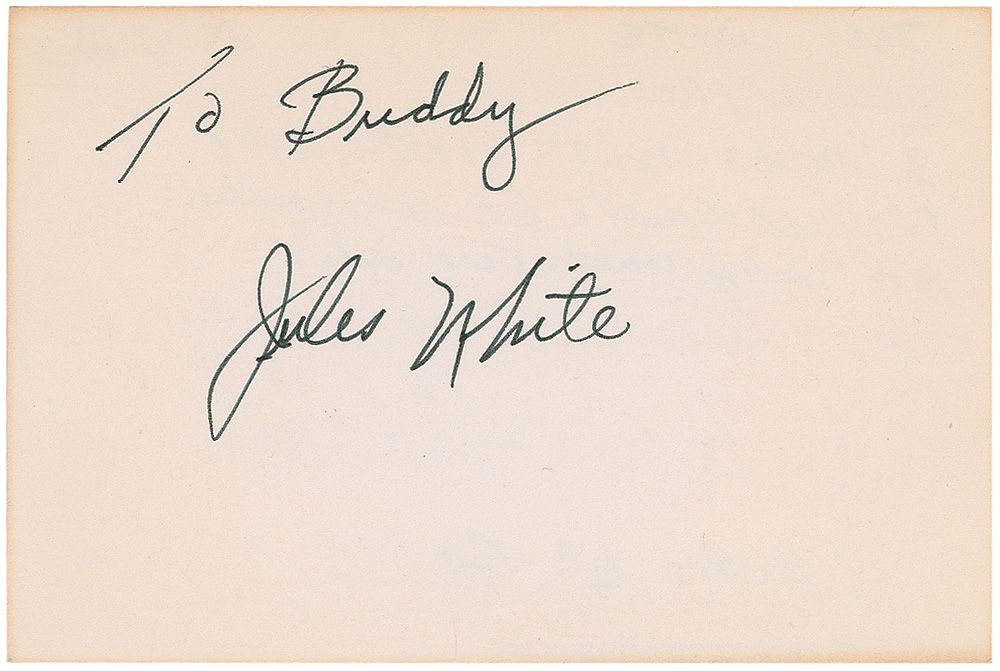 To Buddy
Jules White